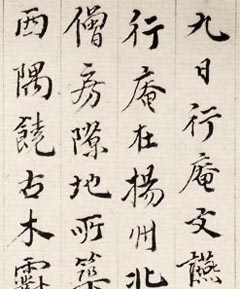 九日行庵文讌
行庵在揚州北
僧房隙地所築
西隅饒古木霨